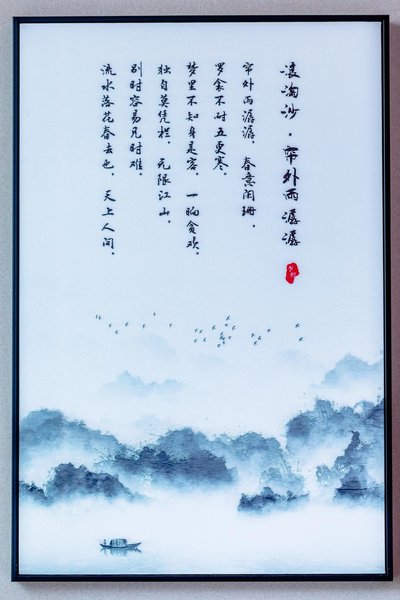 浪淘沙·帘外雨潺潺
帘外雨潺潺，春意阑珊，
罗衾不耐五更寒。
梦里不知身是客，一晌贪欢。
独自莫凭栏，无限江山，
别时容易见时难。
流水落花春去也，天上人间。